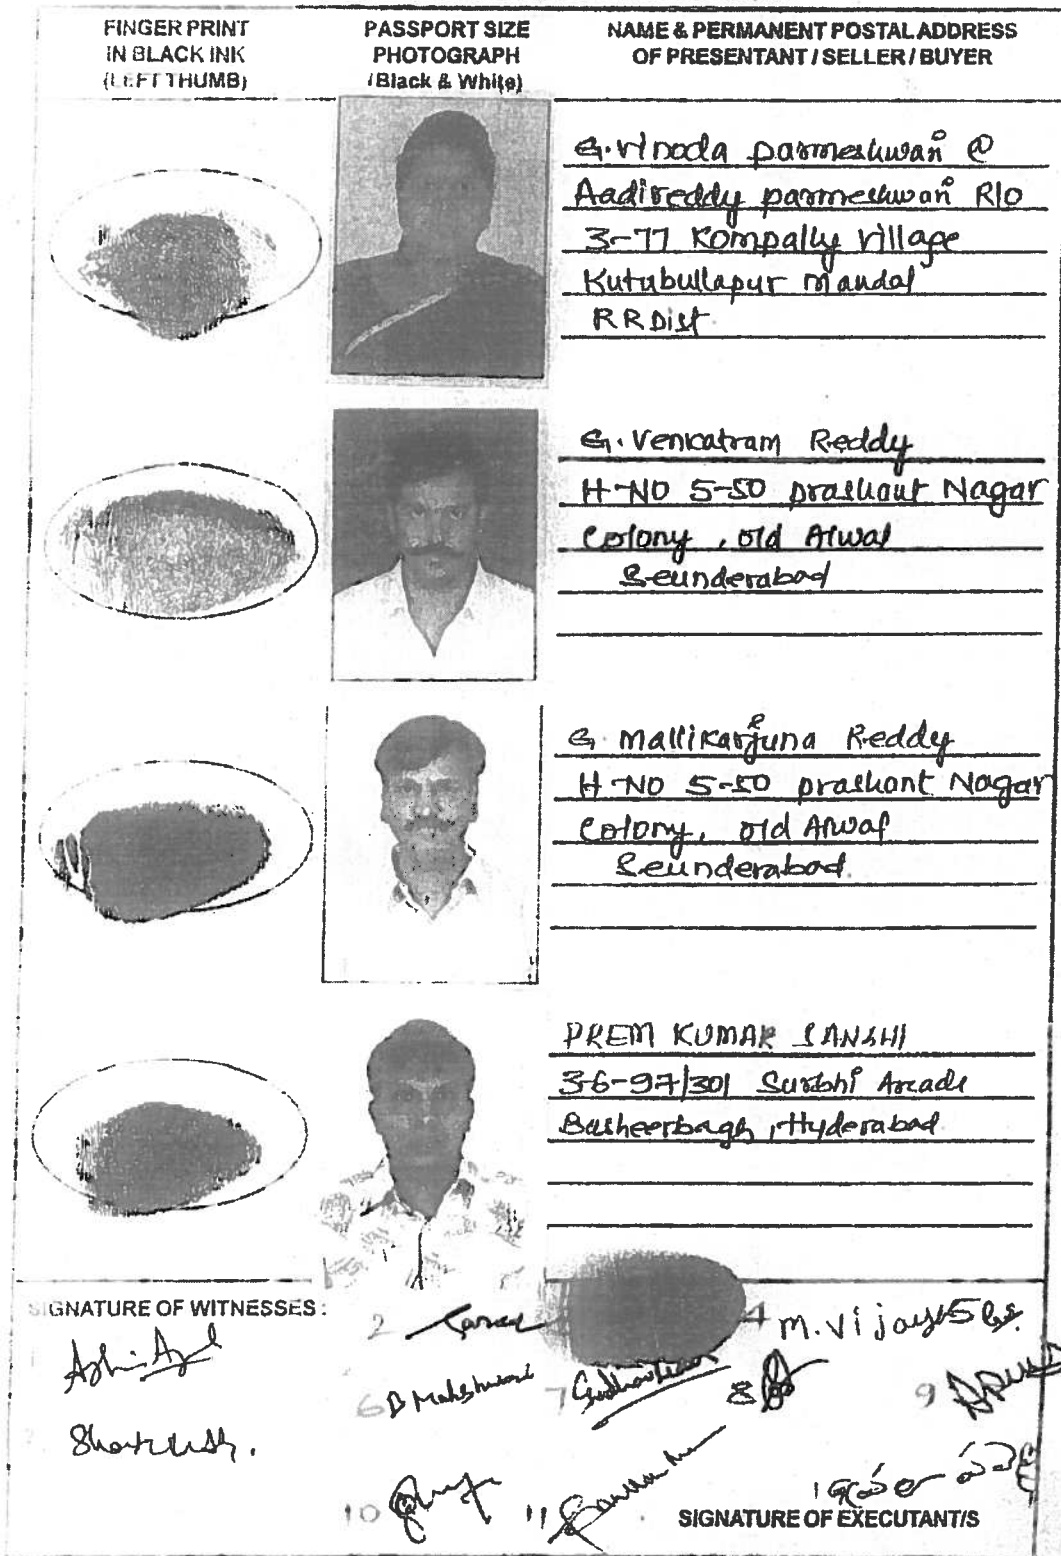 FINGER PRINT
IN BLACK INK
(LEFT THUMB)
PASSPORT SIZE
PHOTOGRAPH
(Black & White)
NAME & PERMANENT POSTAL ADDRESS
OF PRESENTANT / SELLER / BUYER
G. Vinoda parmeshwari @
Aadireddy parmeshwari R/o
3-77 Kompally village
Kutubullapur mandal
RR Dist.
G. Venkatram Reddy
H-NO 5-50 prashant Nagar
Colony, old Alwal
Secunderabad
G. Mallikarjuna Reddy
H-NO 5-50 prashant Nagar
Colony, old Alwal
Secunderabad.
PREM KUMAR SANGHI
3-6-97/301 Surbhi Arcade
Basheerbagh, Hyderabad
SIGNATURE OF WITNESSES :
2
4 M. Vijay 5
6 B Maheshwari 7 8 9
10 11
SIGNATURE OF EXECUTANT/S